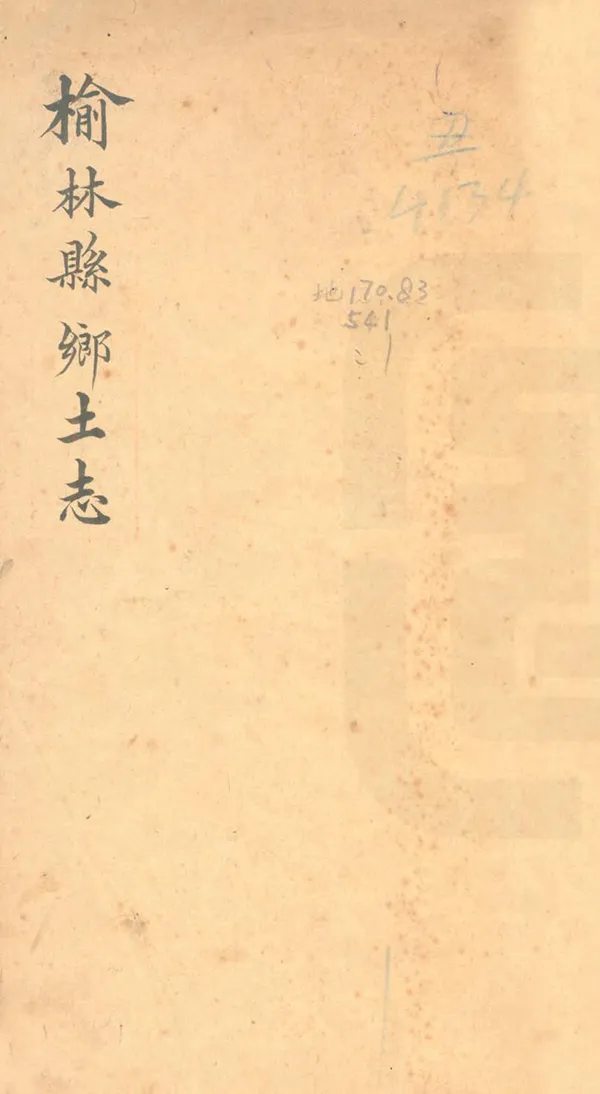 榆林縣鄉土志
丑
4134
地170.83
541